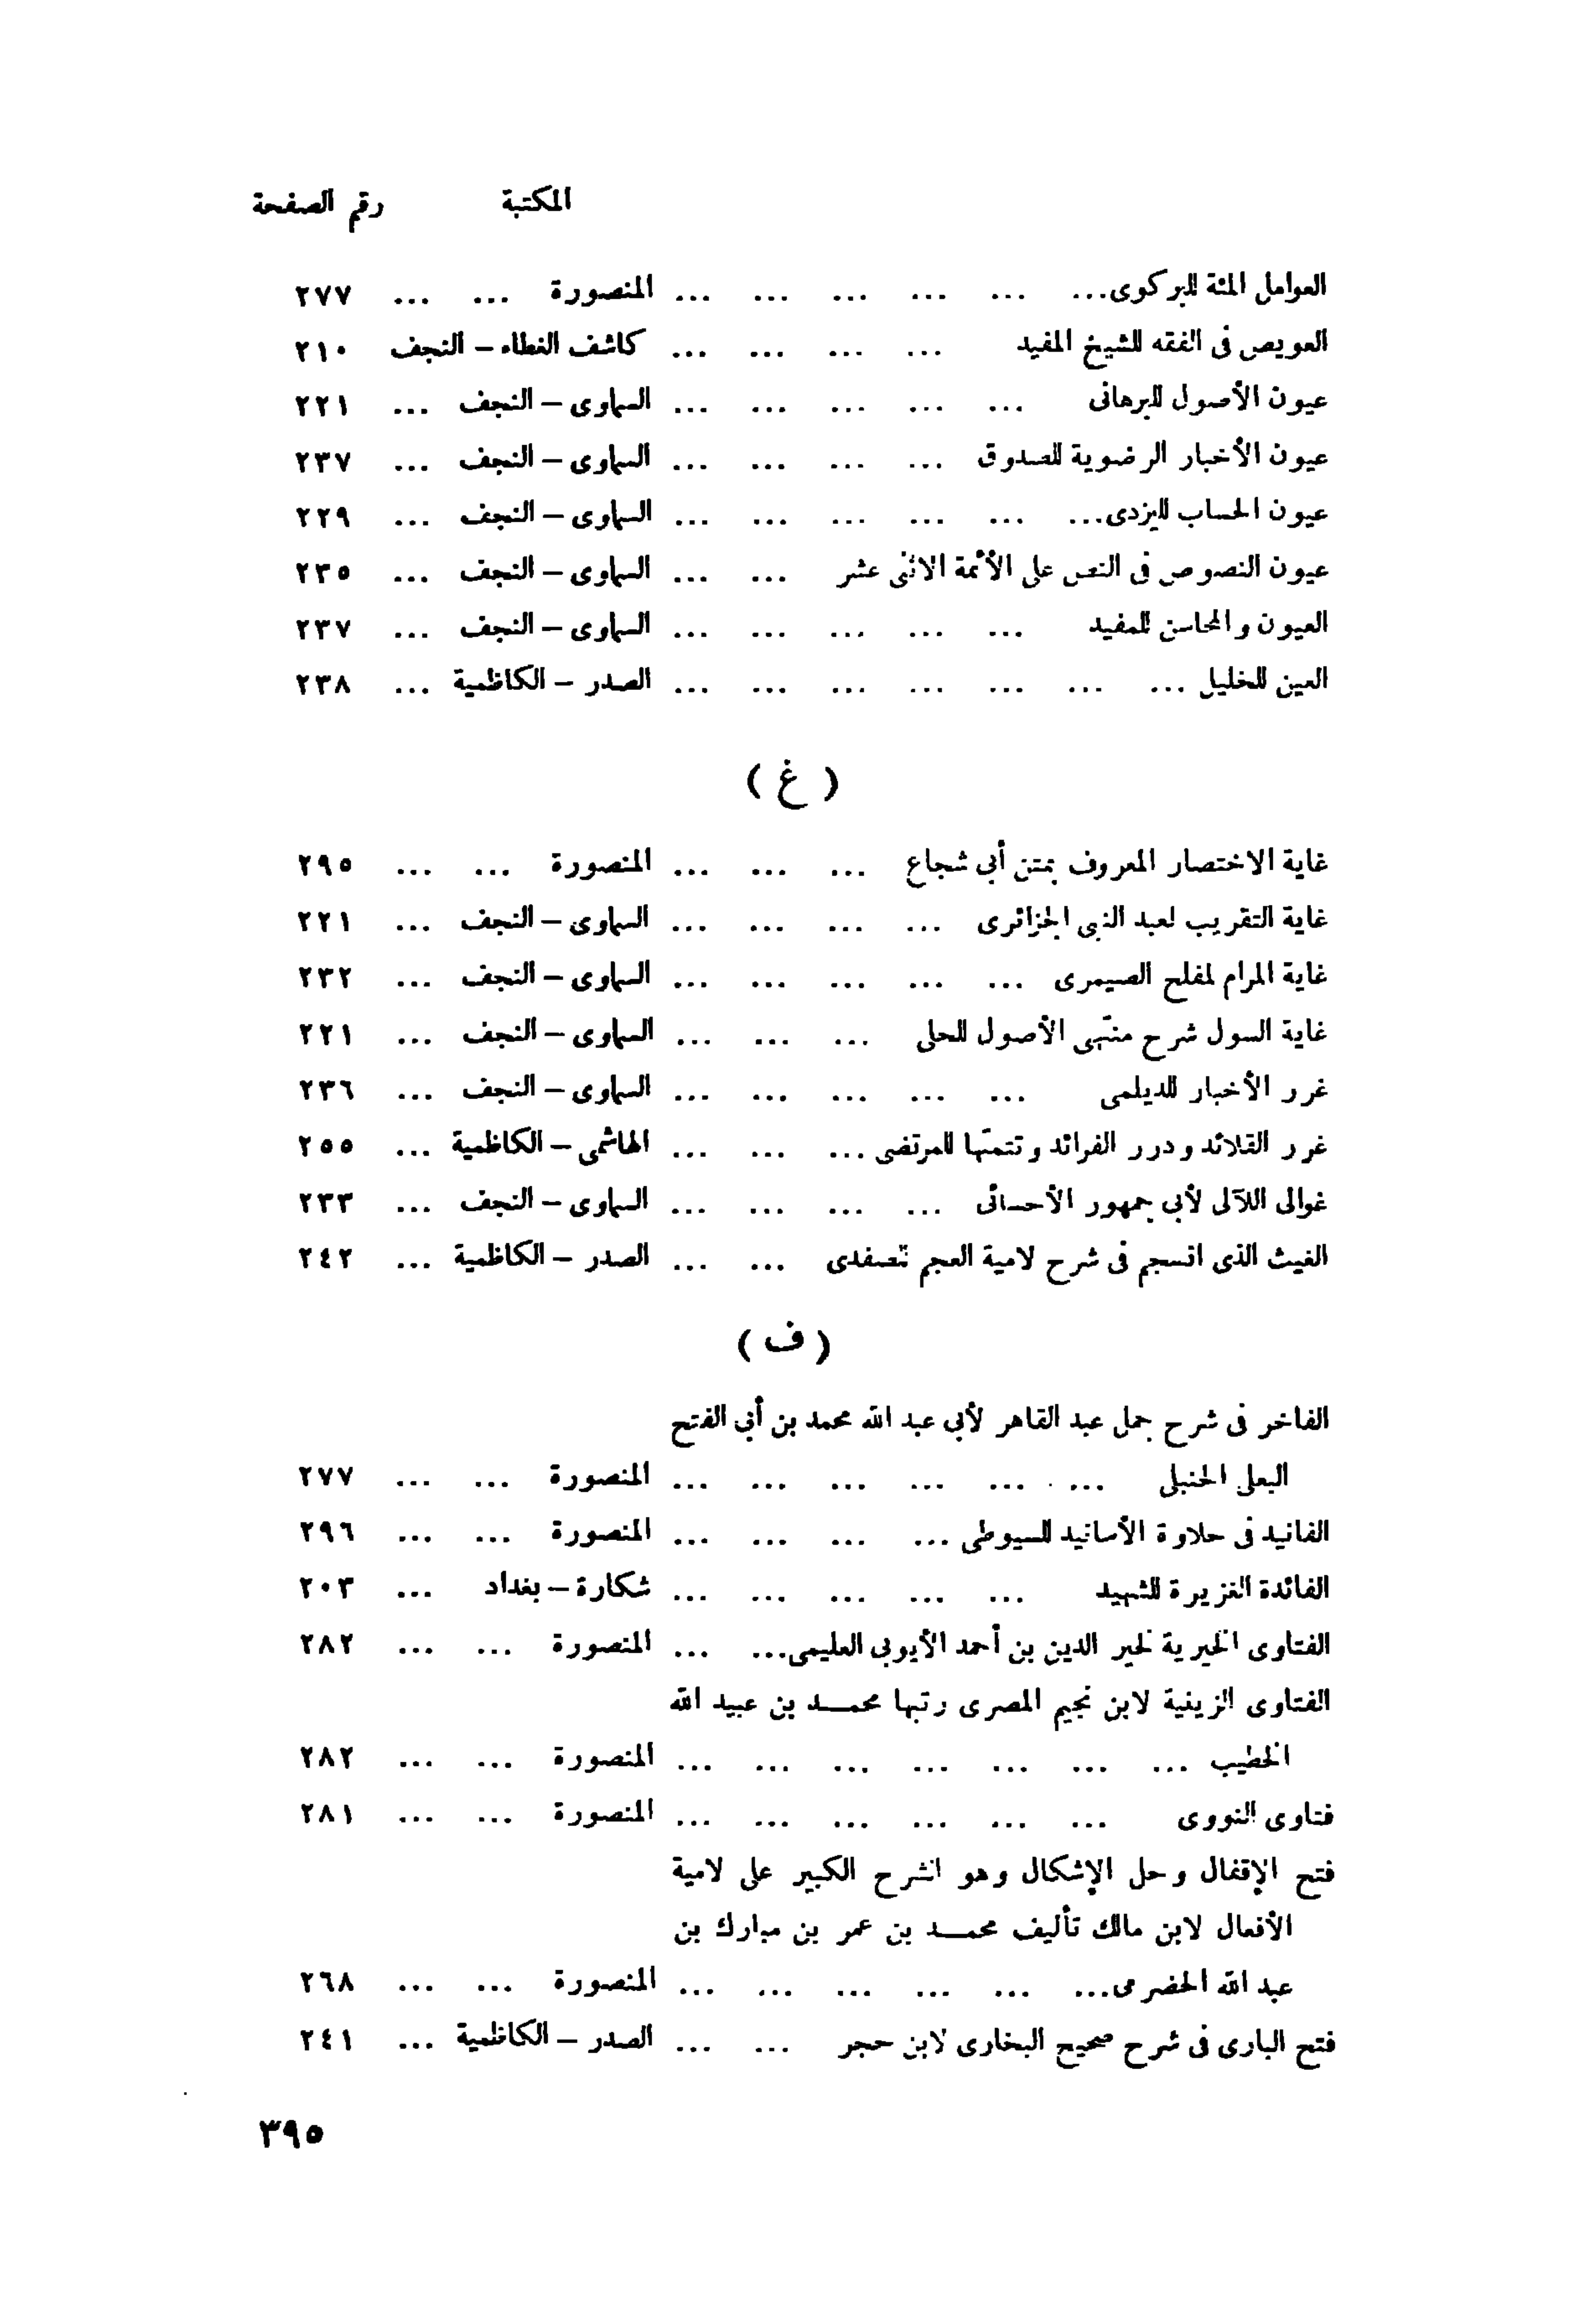 المكتبة رقم الصفحة
العوامل المئة للبركوى... ... ... ... ... ... المنصورة ... ... ٢٧٧
العويص فى الفقه للشيخ المفيد ... ... ... ... كاشف الغطاء – النجف ٢١٠
عيون الأصول للبرهانى ... ... ... ... ... السماوى – النجف ... ٢٢١
عيون الأخبار الرضوية للصدوق ... ... ... ... السماوى – النجف ... ٢٣٧
عيون الحساب لليزدى... ... ... ... ... ... السماوى – النجف ... ٢٢٩
عيون النصوص فى النص على الأئمة الاثنى عشر ... ... السماوى – النجف ... ٢٣٥
العيون والمحاسن للمفيد ... ... ... ... ... السماوى – النجف ... ٢٣٧
العين للخليل ... ... ... ... ... ... ... الصدر – الكاظمية ... ٢٣٨
( غ )
غاية الاختصار المعروف بمتن أبى شجاع ... ... ... المنصورة ... ... ٢٩٥
غاية التقريب لعبد النبى الجزائرى ... ... ... ... السماوى – النجف ... ٢٢١
غاية المرام لمفلح الصيمرى ... ... ... ... ... السماوى – النجف ... ٢٣٢
غاية السول شرح منتهى الأصول للحلى ... ... ... السماوى – النجف ... ٢٢١
غرر الأخبار للديلمى ... ... ... ... ... السماوى – النجف ... ٢٣٦
غرر القلائد ودرر الفرائد وتتمتها للمرتضى ... ... ... الهاشمى – الكاظمية ... ٢٥٥
غوالى اللآلى لأبى جمهور الأحسائى ... ... ... ... السماوى – النجف ... ٢٣٣
الغيث الذى انسجم فى شرح لامية العجم للصفدى ... ... الصدر – الكاظمية ... ٢٤٢
( ف )
الفاخر فى شرح جمل عبد القاهر لأبى عبد الله محمد بن أبى الفتح
البعلى الحنبلى ... ... ... ... ... ... المنصورة ... ... ٢٧٧
الفانيد فى حلاوة الأسانيد للسيوطى ... ... ... ... المنصورة ... ... ٢٩٦
الفائدة الغزيرة للشهيد ... ... ... ... ... شكارة – بغداد ... ٢٠٣
الفتاوى الخيرية لخير الدين بن أحمد الأيوبى العليمى... ... المنصورة ... ... ٢٨٢
الفتاوى الزينية لابن نجيم المصرى رتبها محمـــد بن عبيد الله
الخطيب ... ... ... ... ... ... ... المنصورة ... ... ٢٨٢
فتاوى النووى ... ... ... ... ... ... المنصورة ... ... ٢٨١
فتح الإقفال وحل الإشكال وهو الشرح الكبير على لامية
الأفعال لابن مالك تأليف محمـــد بن عمر بن مبارك بن
عبد الله الحضرمى... ... ... ... ... ... المنصورة ... ... ٢٦٨
فتح البارى فى شرح صحيح البخارى لابن حجر ... ... الصدر – الكاظمية ... ٢٤١
٣٩٥